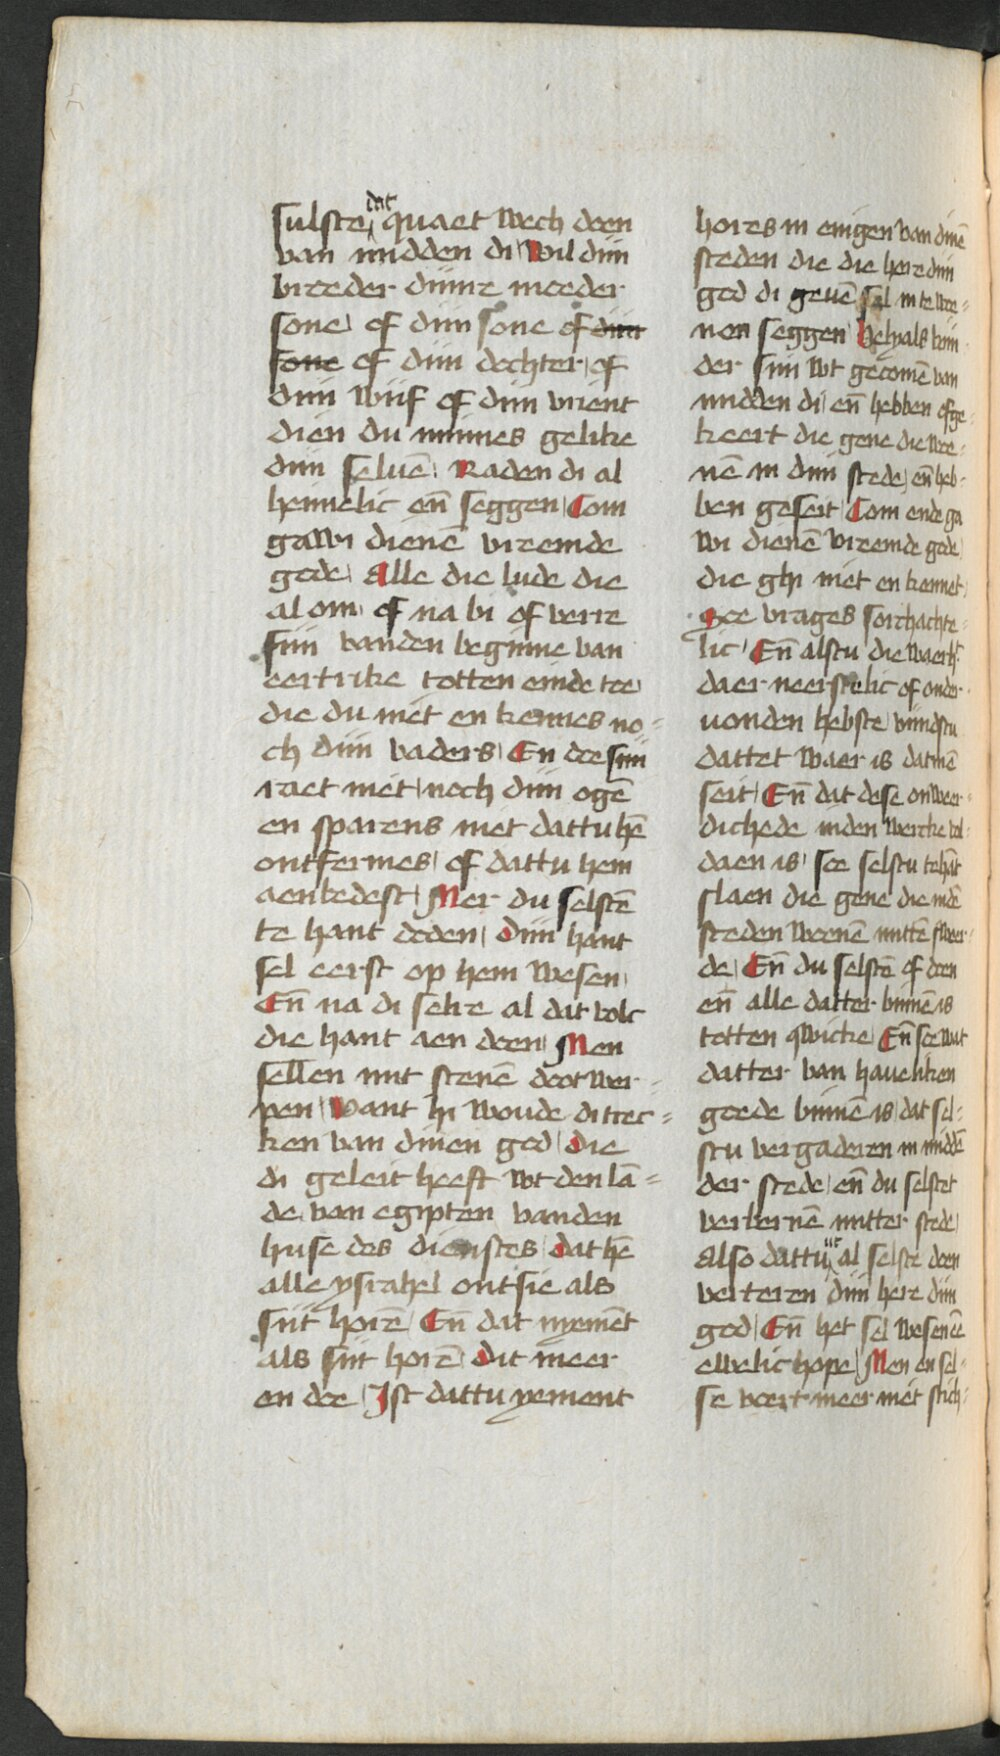 sulste dat quaet wech doen
van midden di wil dijn
broeder dijnre moeder
sone of dijn sone of dijn
sone of dijn dochter of
dijn wijf of dijn vrient
dien du minnes gelike
dijn seluē Raden di al
heimelic eñ seggen Com
ga wi dienē vreemde
gode Alle die lude die
al om of na bi of verre
sijn vanden beginne van
eertrike totten einde toe
die du niet en kennes no⸗
ch dijn vaders En doe sijn
raet niet noch dijn ogē
en sparens niet dattu hē
ontfermes of dattu hem
aenbedest Mer du selstē
te hant doden dijn hant
sel eerst op hem wesen
Eñ na di selre al dat volc
die hant aen doen Men
sellen mit stenē doot wer⸗
pen Want hi woude di trec⸗
ken van dinen god die
di geleit heeft wt den lā⸗
de van egipten vanden
huse des dienstes dat hē
alle ysrahel ontsie als
sijt horē Eñ dat nyemēt
als sijt horē dit meer
en doe Ist dattu yement
hores in enigen van dinē
steden die die here dijn
god di geuē sel in te woe⸗
nen seggen Belyals kijn
der sijn wt gecomē van
midden di eñ hebben ofge⸗
keert die gene die woe⸗
nē in dijn stede eñ heb⸗
ben geseit Com ende ga
wi dienē vreemde gode
die ghi niet en kennet
Soe vrages sorchachte⸗
lic Eñ alstu die waerht
daer neerstelic of onder⸗
uonden hebste vijndstu
dattet waer is datmē
seit Eñ dat dese onweer⸗
dichede inden wercke vol⸗
daen is soe selstu tehāt
slaen die gene die indē
steden woenē mittē sweer⸗
de Eñ du selstē of doen
eñ alle datter binnē is
totten qwicke Eñ soe wat
datter van haueliken
goede binnē is dat sel⸗
stu vergaderen in middē
der stede eñ du selstet
verbernē mitter stede
Also dattuut al selste doen
verteren dijn here dijn
god Eñ het sel wesen ee
ewelic hope Men en sel⸗
se voert meer niet stich⸗